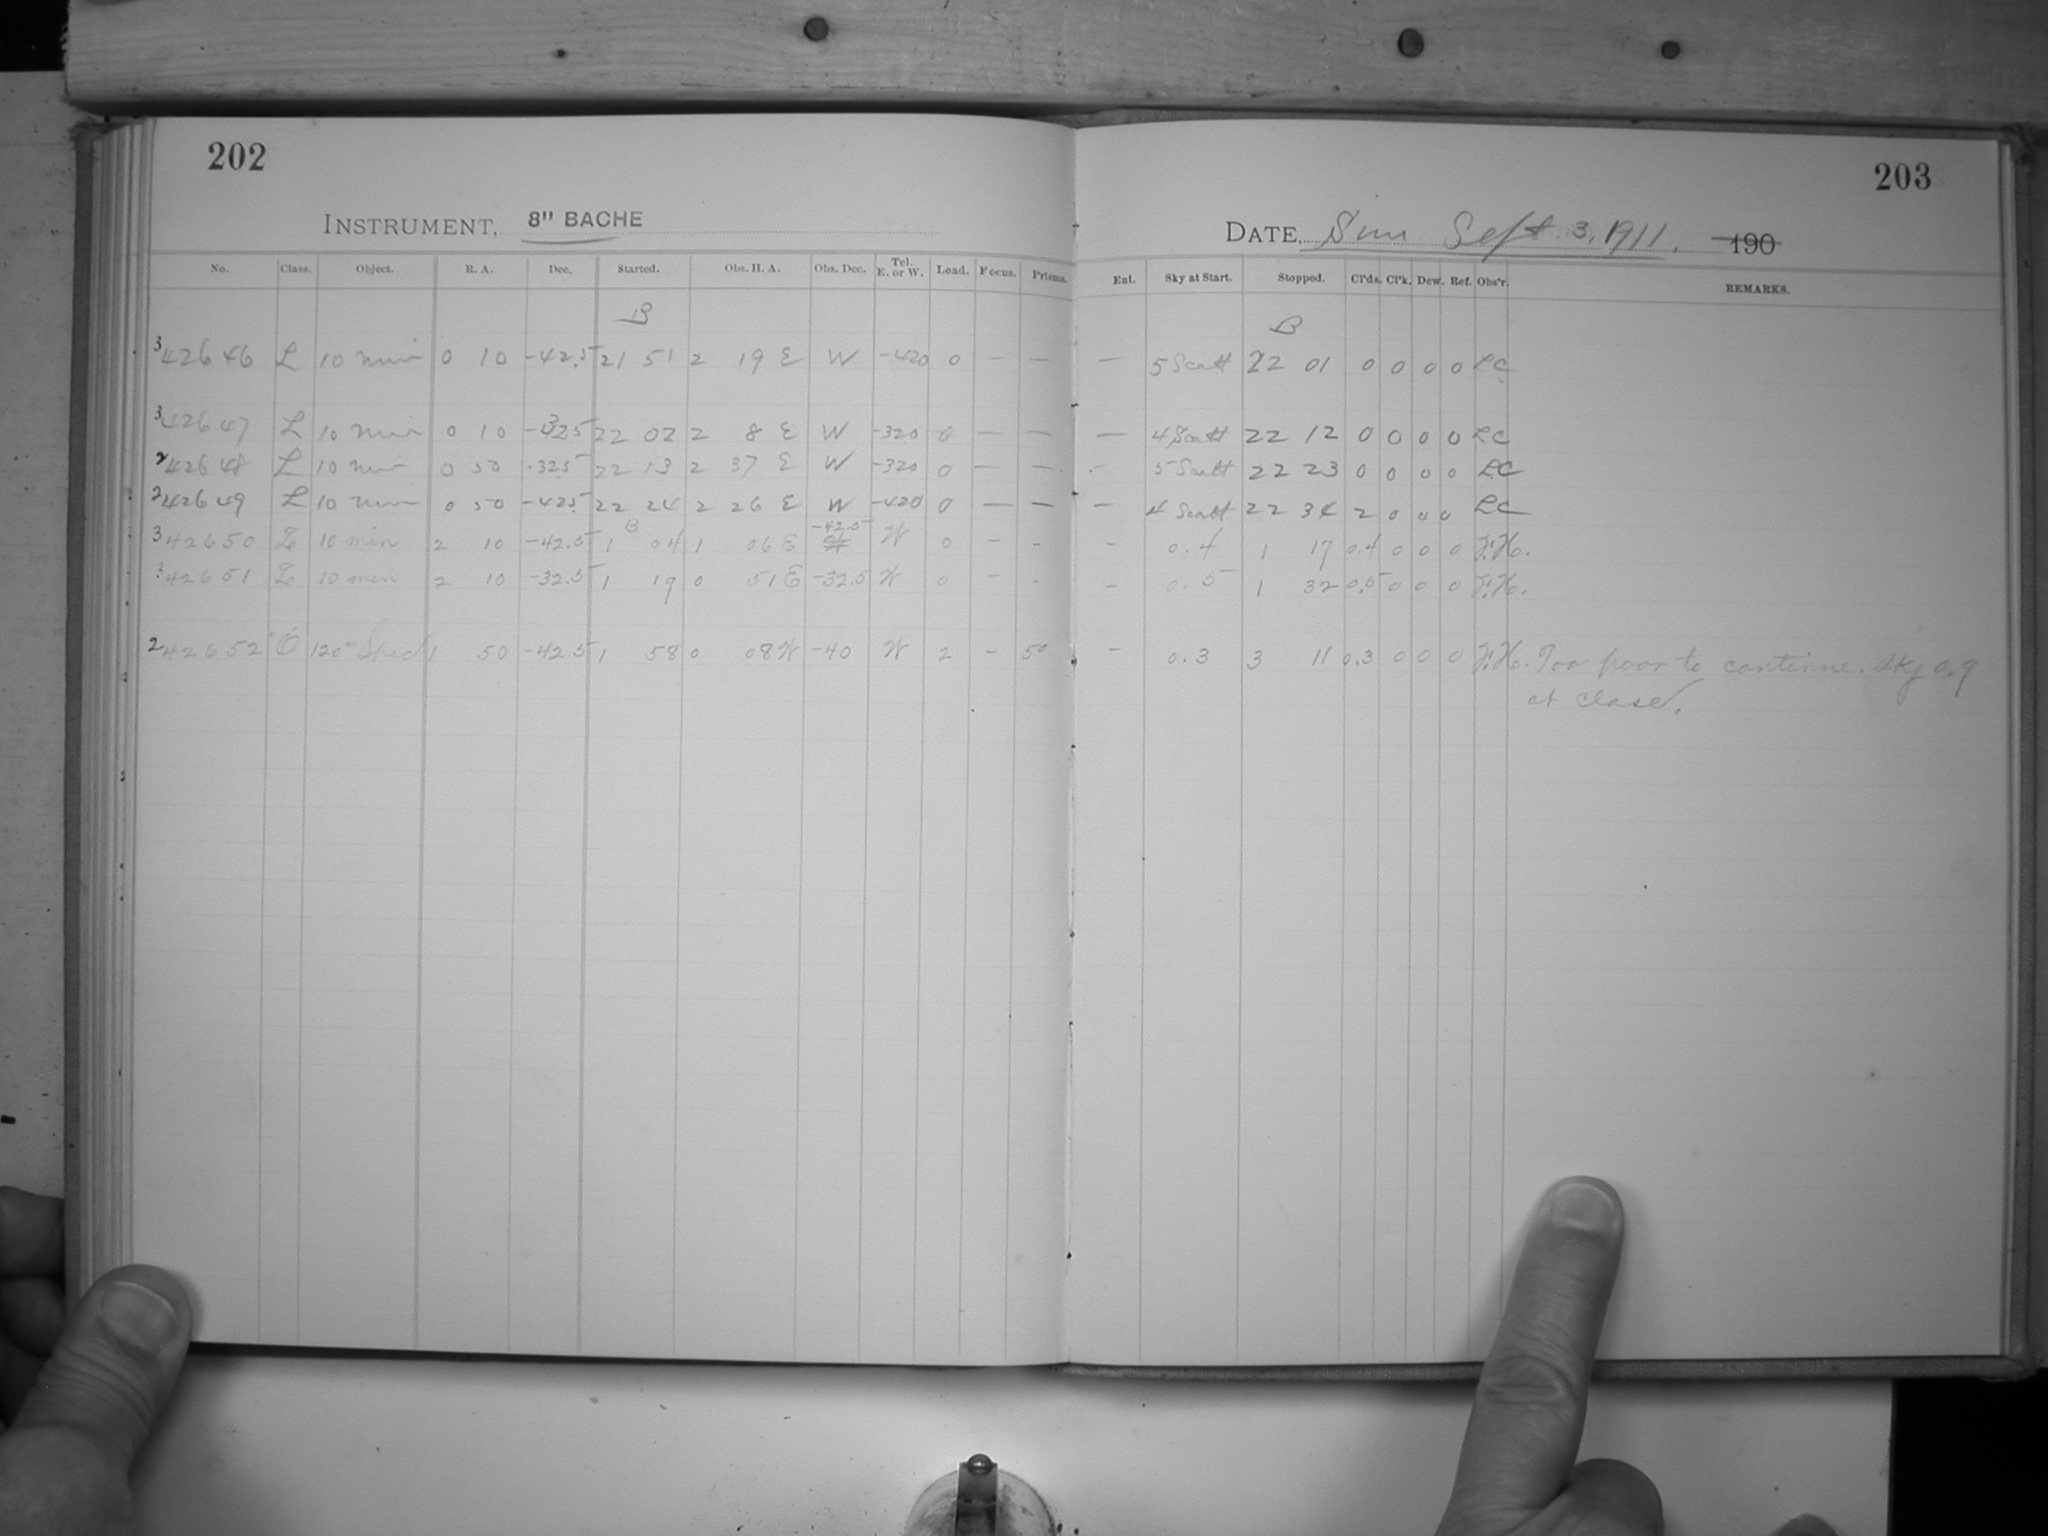 202
203
INSTRUMENT, 8" BACHE
DATE, Sun Sept 3, 1911. 190
No. Class. Object. R. A. Dec. Started. Obs. H. A. Obs. Dec. Tel. E. or W. Load. Focus. Prisms. Enl. Sky at Start. Stopped. Cl'ds. Cl'k. Dew. Ref. Obs'r. REMARKS.
B B
3 42646 L 10 min 0 10 -42.5 21 51 2 19 E W -420 0 — — — 5 Scatt 22 01 0 0 0 0 LC
3 42647 L 10 min 0 10 -325 22 02 2 8 E W -320 0 — — — 4 Scatt 22 12 0 0 0 0 LC
2 42648 L 10 min 0 50 -325 22 13 2 37 E W -320 0 — — — 5 Scatt 22 23 0 0 0 0 LC
2 42649 L 10 min 0 50 -425 22 24 2 26 E W -420 0 — — — 4 Scatt 22 34 2 0 0 0 LC
B -42.5
3 42650 L 10 min 2 10 -42.5 1 04 1 06 E W W 0 - - - 0.4 1 17 0.4 0 0 0 F.H.
3 42651 L 10 min 2 10 -32.5 1 19 0 51 E -32.5 W 0 - - - 0.5 1 32 0.5 0 0 0 F.H.
2 42652 O 120m 1 50 -42.5 1 58 0 08 W -40 W 2 - 50 - 0.3 3 11 0.3 0 0 0 F.H. Too poor to continue. Sky 0.9
at close.